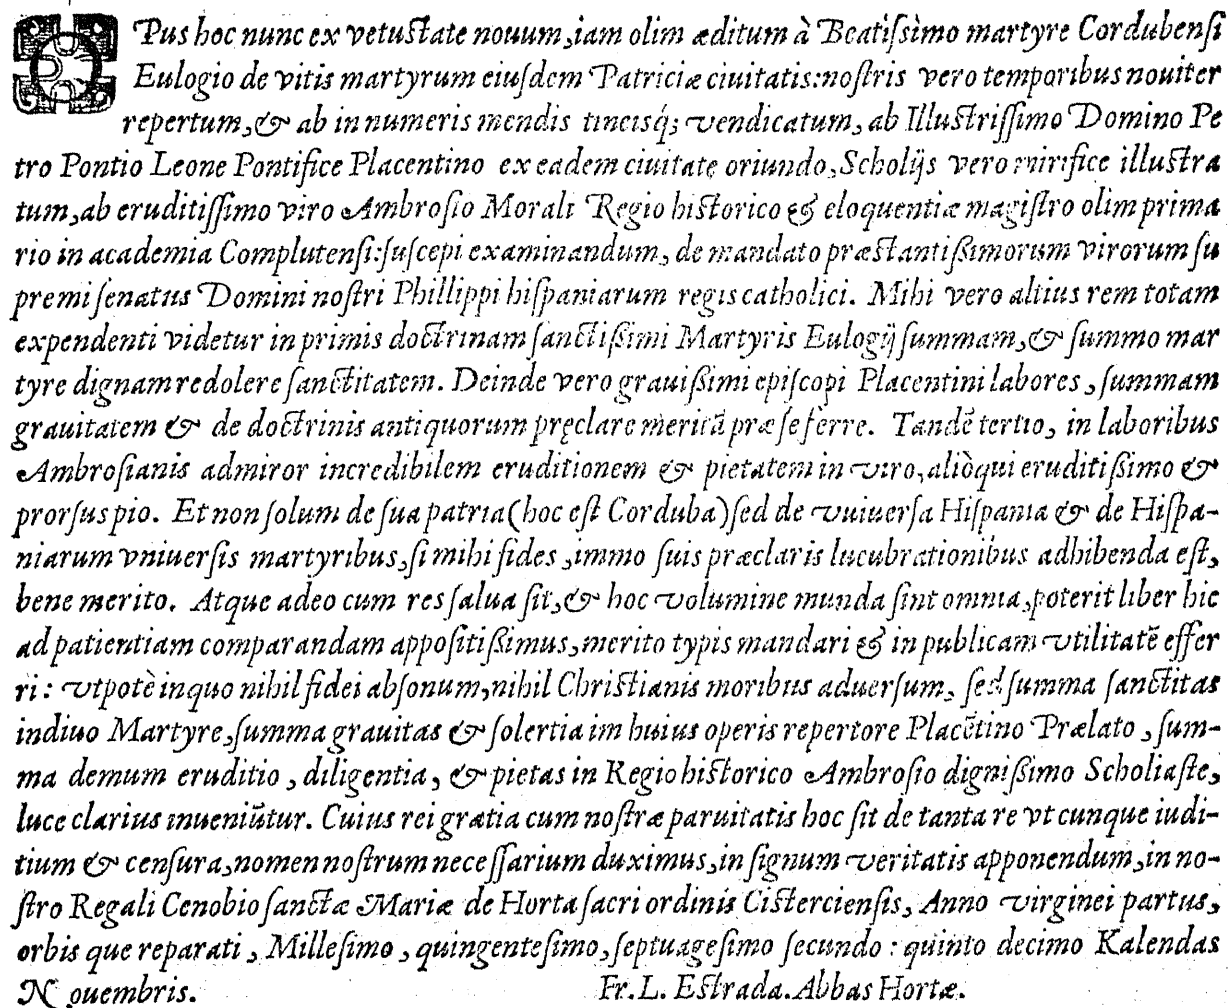 OPus hoc nunc ex vetustate nouum, iam olim æditum à Beatiſsimo martyre Cordubenſi
Eulogio de vitis martyrum eiuſdem Patriciæ ciuitatis: noſtris vero temporibus nouiter
repertum, & ab innumeris mendis tincisq́; vendicatum, ab Illuſtriſſimo Domino Pe
tro Pontio Leone Pontifice Placentino ex eadem ciuitate oriundo, Scholijs vero mirifice illuſtra
tum, ab eruditiſſimo viro Ambroſio Morali Regio hiſtorico & eloquentiæ magiſtro olim prima
rio in academia Complutenſi: ſuſcepi examinandum, de mandato præſtantiſsimorum virorum ſu
premi ſenatus Domini noſtri Phillippi hiſpaniarum regis catholici. Mihi vero altius rem totam
expendenti videtur in primis doctrinam ſanctiſsimi Martyris Eulogij ſummam, & ſummo mar
tyre dignam redolere ſanctitatem. Deinde vero grauiſsimi epiſcopi Placentini labores, ſummam
grauitatem & de doctrinis antiquorum pręclare meritā præ ſe ferre. Tandē tertio, in laboribus
Ambroſianis admiror incredibilem eruditionem & pietatem in viro, aliòqui eruditiſsimo &
prorſus pio. Et non ſolum de ſua patria (hoc eſt Corduba) ſed de vniuerſa Hiſpania & de Hiſpa-
niarum vniuerſis martyribus, ſi mihi fides, immo ſuis præclaris lucubrationibus adhibenda eſt,
bene merito. Atque adeo cum res ſalua ſit, & hoc volumine munda ſint omnia, poterit liber hic
ad patientiam comparandam appoſitiſsimus, merito typis mandari & in publicam vtilitatē effer
ri: vtpotè in quo nihil fidei abſonum, nihil Chriſtianis moribus aduerſum, ſed ſumma ſanctitas
in diuo Martyre, ſumma grauitas & ſolertia im huius operis repertore Placētino Prælato, ſum-
ma demum eruditio, diligentia, & pietas in Regio hiſtorico Ambroſio digniſsimo Scholiaſte,
luce clarius inueniūtur. Cuius rei gratia cum noſtræ paruitatis hoc ſit de tanta re vt cunque iudi-
tium & cenſura, nomen noſtrum neceſſarium duximus, in ſignum veritatis apponendum, in no-
ſtro Regali Cenobio ſanctæ Mariæ de Horta ſacri ordinis Ciſtercienſis, Anno virginei partus,
orbis que reparati, Milleſimo, quingenteſimo, ſeptuageſimo ſecundo: quinto decimo Kalendas
Nouembris. Fr. L. Eſtrada. Abbas Hortæ.